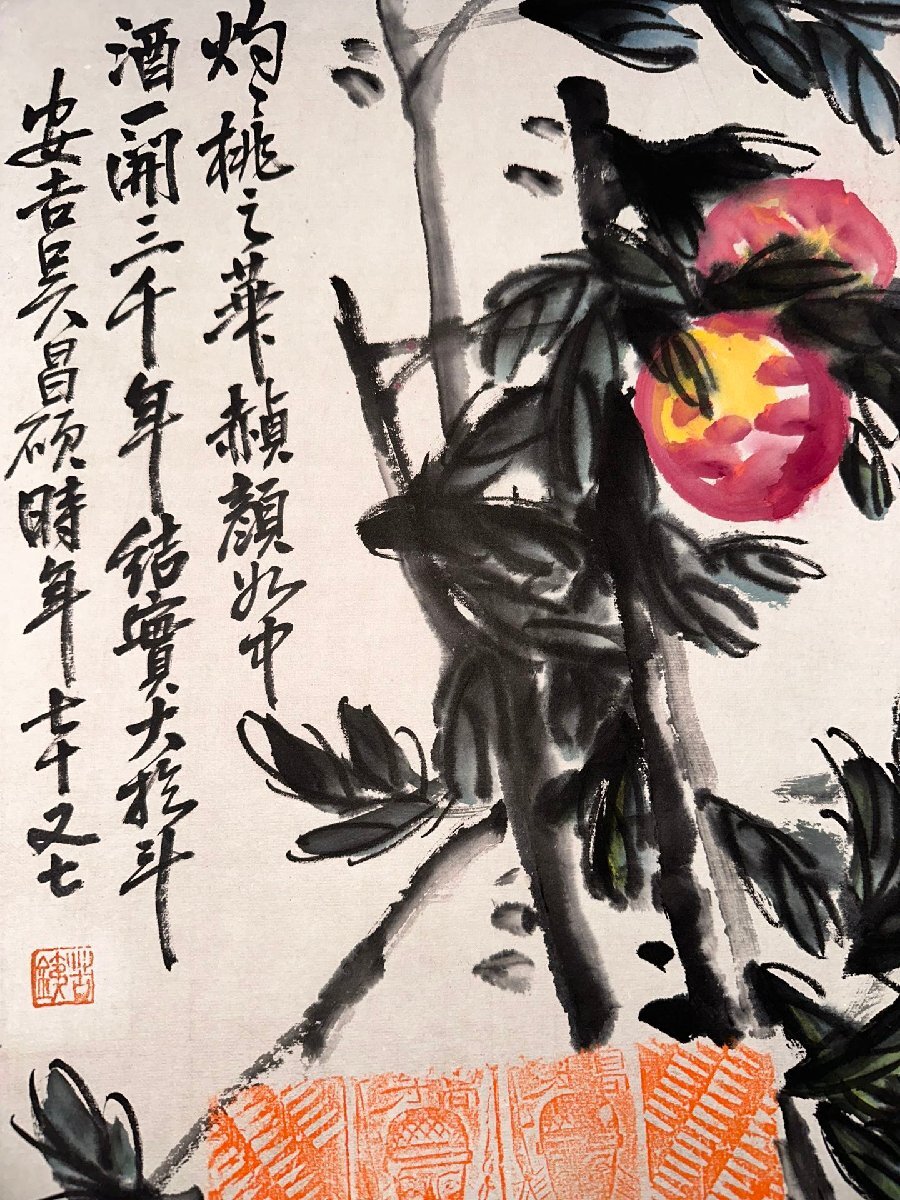 灼〻桃之華赬顏如中
酒一開三千年結實大於斗
安吉吳昌碩時年七十又七